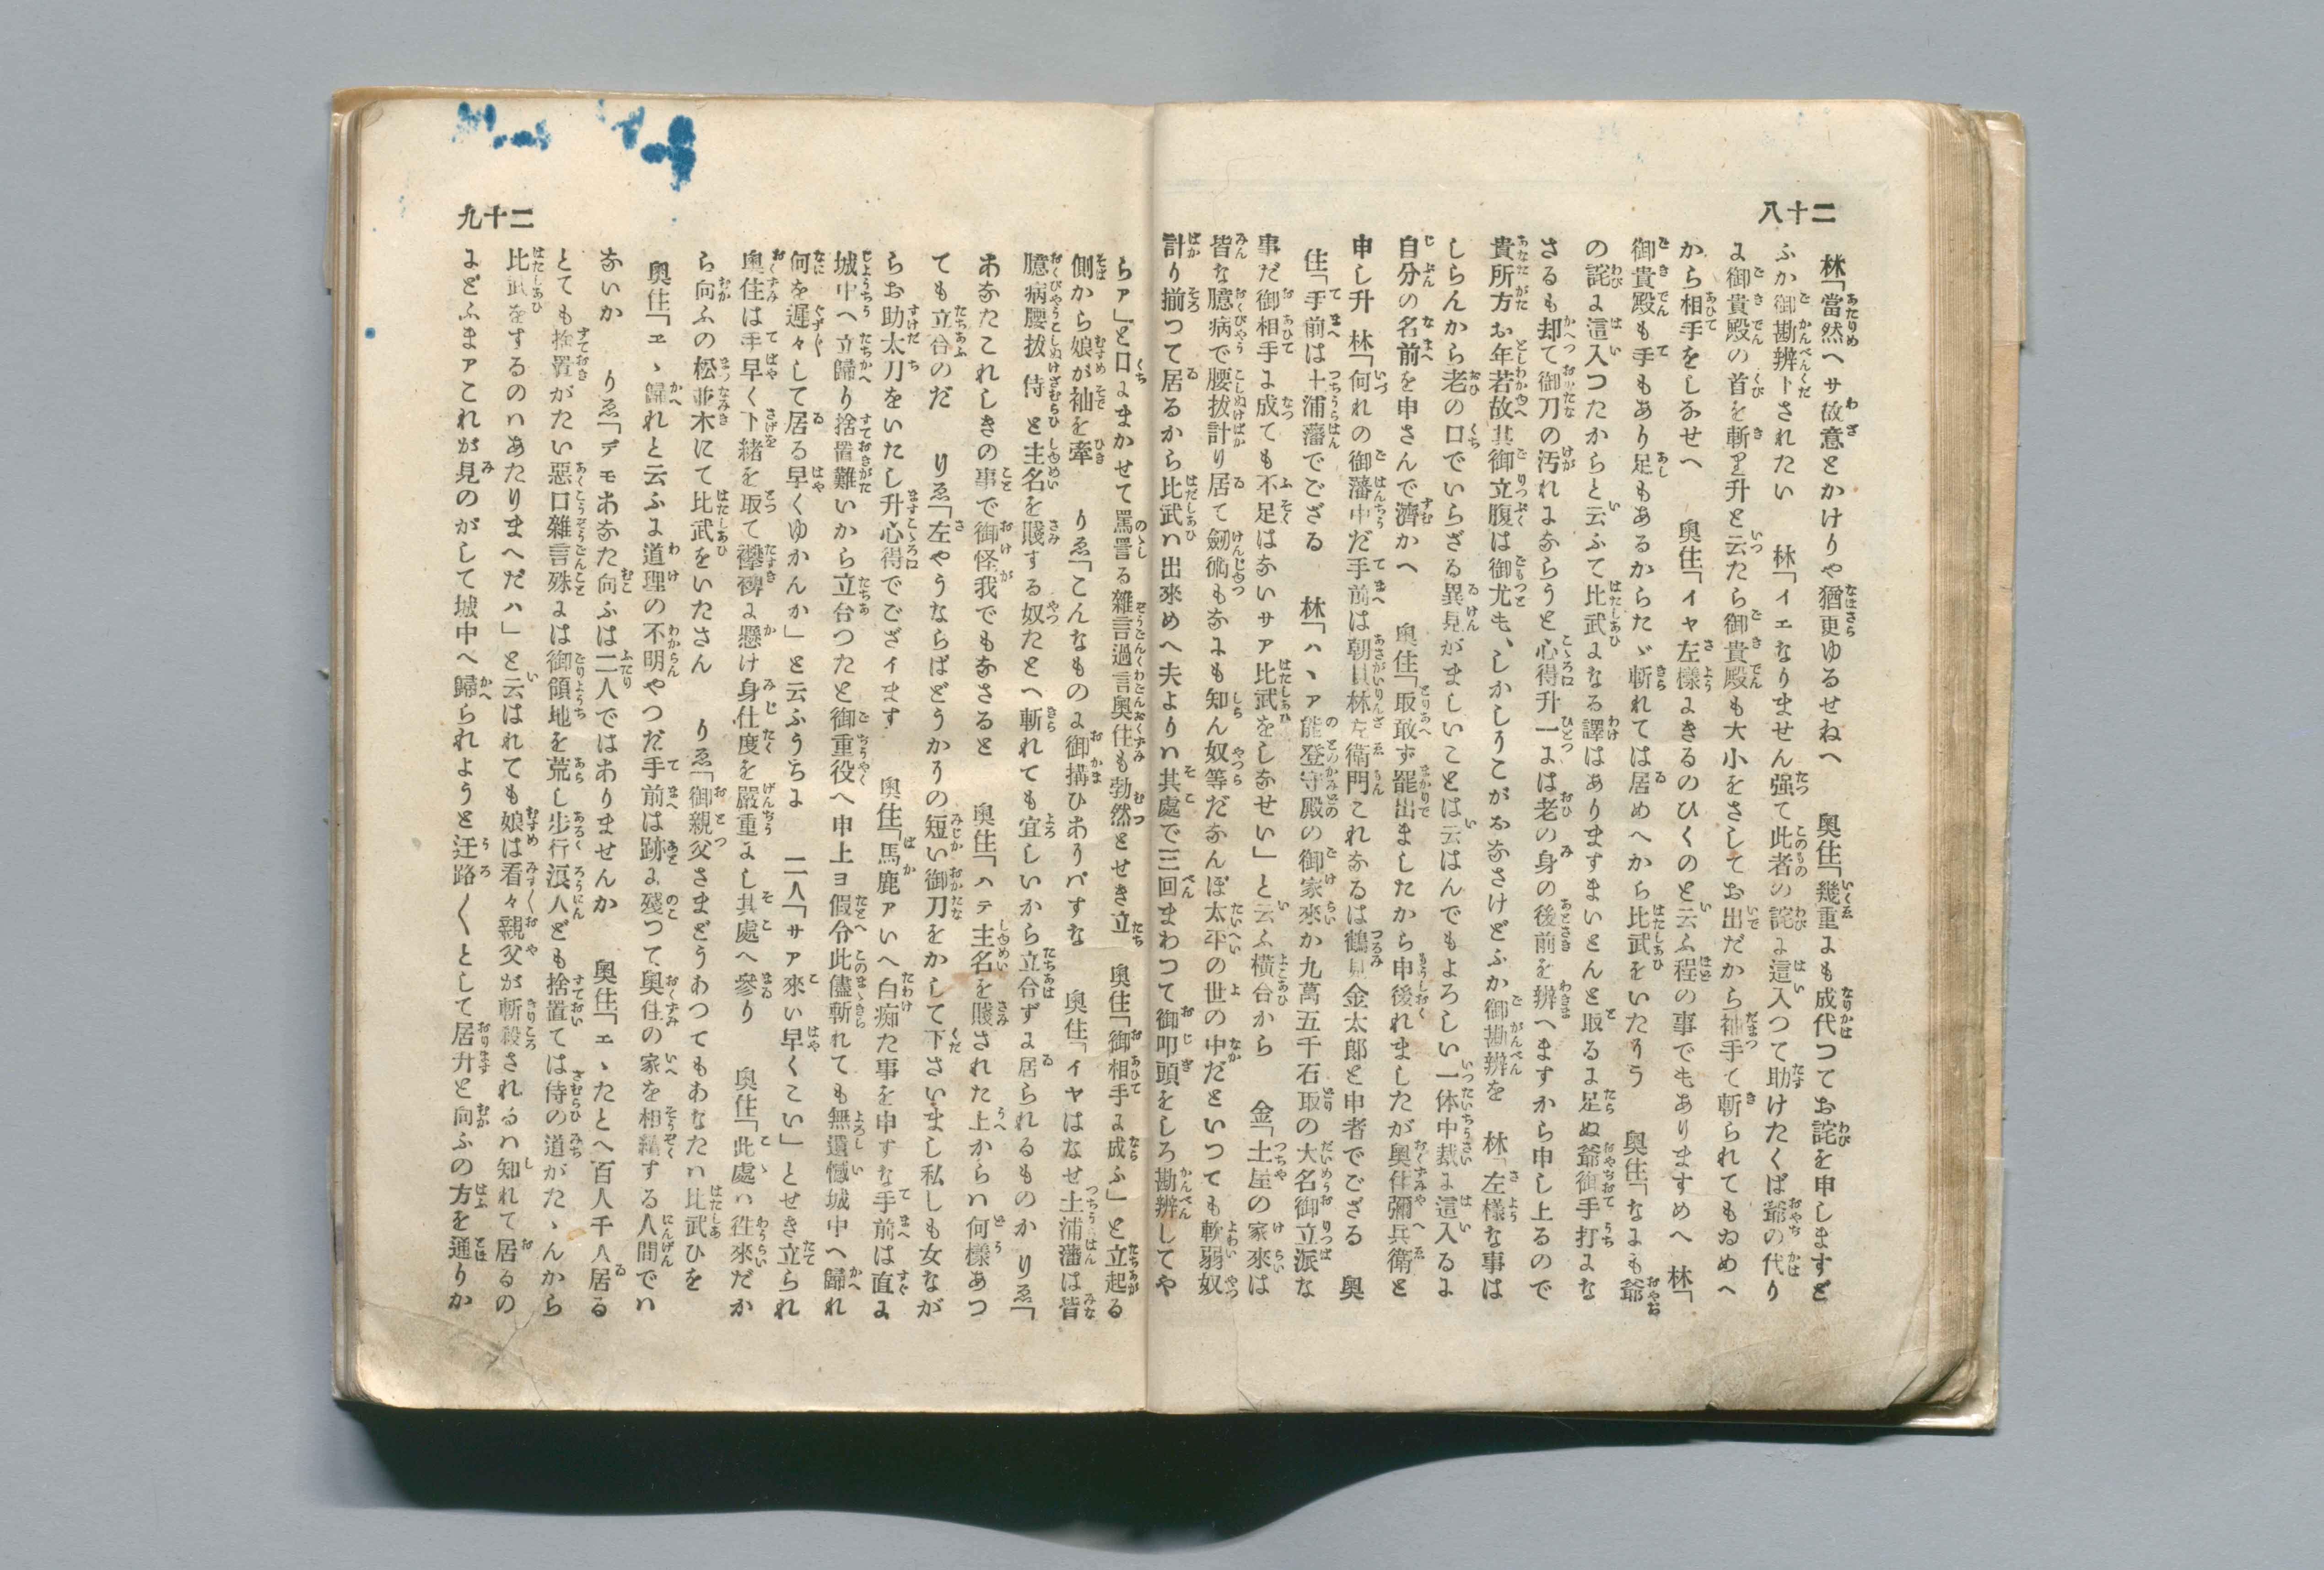 二十八
林「當然へサ故意とかけりや猶更ゆるせねへ　奥住「幾重にも成代つてお詫を申しますど
ふか御勘辨下されたい　林「イエなりません强て此者の詫に這入つて助けたくば爺の代り
に御貴殿の首を斬り升と云たら御貴殿も大小をさしてお出だから袖手て斬られてもゐめへ
から相手をしなせへ　奥住「イヤ左樣にきるのひくのと云ふ程の事でもありますめへ　林「
御貴殿も手もあり足もあるからたゞ斬れては居めへから比武をいたそう　奥住「なにも爺
の詫に這入つたからと云ふて比武になる譯はありますまいとんと取るに足ぬ爺御手打にな
さるも却て御刀の汚れにならうと心得升一には老の身の後前を辨へますから申し上るので
貴所方お年若故其御立腹は御尤も、しかしそこがおなさけどふか御勘辨を　林「左樣な事は
しらんから老の口でいらざる異見がましいことは云はんでもよろしい一体中裁に這入るに
自分の名前を申さんで濟かへ　奥住「取敢ず罷出ましたから申後れましたが奥住彌兵衛と
申し升　林「何れの御藩中だ手前は朝貝林左衛門これなるは鶴見金太郎と申者でござる　奥
住「手前は土浦藩でござる　林「ハヽア能登守殿の御家來か九萬五千石取の大名御立派な
事だ御相手に成ても不足はないサア比武をしなせい」と云ふ横合から　金「土屋の家來は
皆な臆病で腰拔計り居て劒術もなにも知ん奴等だなんぼ太平の世の中だといつても軟弱奴
計り揃つて居るから比武ハ出來めへ夫よりハ其處で三回まわつて御叩頭をしろ勘辨してや
二十九
らァ」と口にまかせて罵詈る雜言過言奥住も勃然とせき立　奥住「御相手に成ふ」と立起る
側から娘が袖を牽　りゑ「こんなものに御搆ひありバすな　奥住「イヤはなせ土浦藩は皆
臆病腰拔侍と主名を賤する奴たとへ斬れても宜しいから立合ずに居られるものか　りゑ「
あなたこれしきの事で御怪我でもなさると　奥住「ハテ主名を賤された上からハ何樣あつ
ても立合のだ　りゑ「左やうならばどうかその短い御刀をかして下さいまし私しも女なが
らお助太刀をいたし升心得でござイます　奥住「馬鹿アいへ白痴た事を申すな手前は直に
城中へ立歸り捨置難いから立合つたと御重役へ申上ヨ假令此儘斬れても無遺憾城中へ歸れ
何を遲々して居る早くゆかんか」と云ふうちに　二人「サア來い早くこい」とせき立られ
奥住は手早く下緖を取て襷に懸け身仕度を嚴重にし其處へ參り　奥住「此處ハ徃來だか
ら向ふの松並木にて比武をいたさん　りゑ「御親父さまどうあつてもあなたハ比武ひを
奥住「エヽ歸れと云ふに道理の不明やつだ手前は跡に殘つて奥住の家を相續する人間でハ
ないか　りゑ「デモあなた向ふは二人ではありませんか　奥住「エヽたとへ百人千人居る
とても捨置がたい惡口雜言殊には御領地を荒し步行浪人ども捨置ては侍の道がたゝんから
比武をするのハあたりまへだハ」と云はれても娘は看々親父が斬殺されるハ知れて居るの
にどふまァこれが見のがして城中へ歸られようと迂路〱として居升と向ふの方を通りか